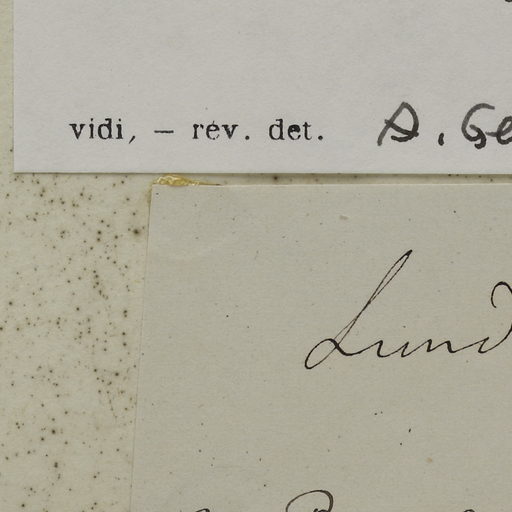 vidi, — rev. det. A. Ge
Lund